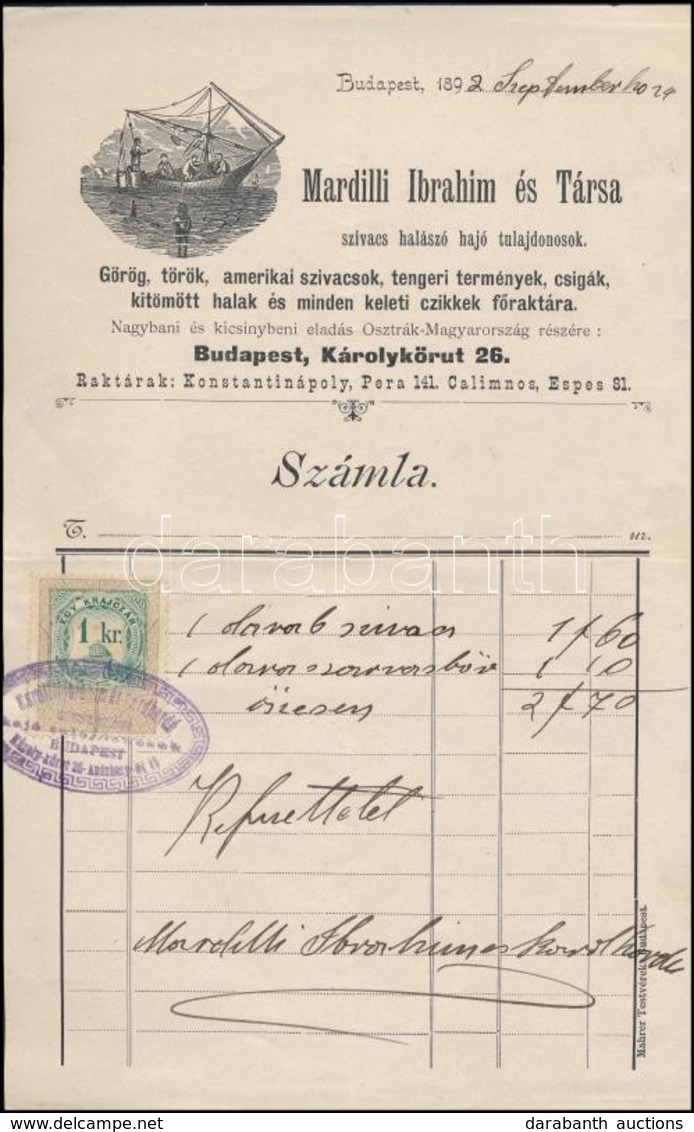 Budapest, 1892 September hó 24
Mardilli Ibrahim és Társa
szivacs halászó hajó tulajdonosok.
Görög, török, amerikai szivacsok, tengeri termények, csigák,
kitömött halak és minden keleti czikkek főraktára.
Nagybani és kicsinybeni eladás Osztrák-Magyarország részére :
Budapest, Károlykörut 26.
Raktárak: Konstantinápoly, Pera 141. Calimnos, Espes 81.
Számla.
T. urz.
EGY KRAJCZÁR
1 kr.
1 darab szivacs 1 f 60
1 darab szarvasbőr 1 10
összesen 2 f 70
BUDAPEST
Mardilli Ibrahim
Mahrer Testvérek, Budapest.
darabanth
www.darabanth.hu
darabanth auctions